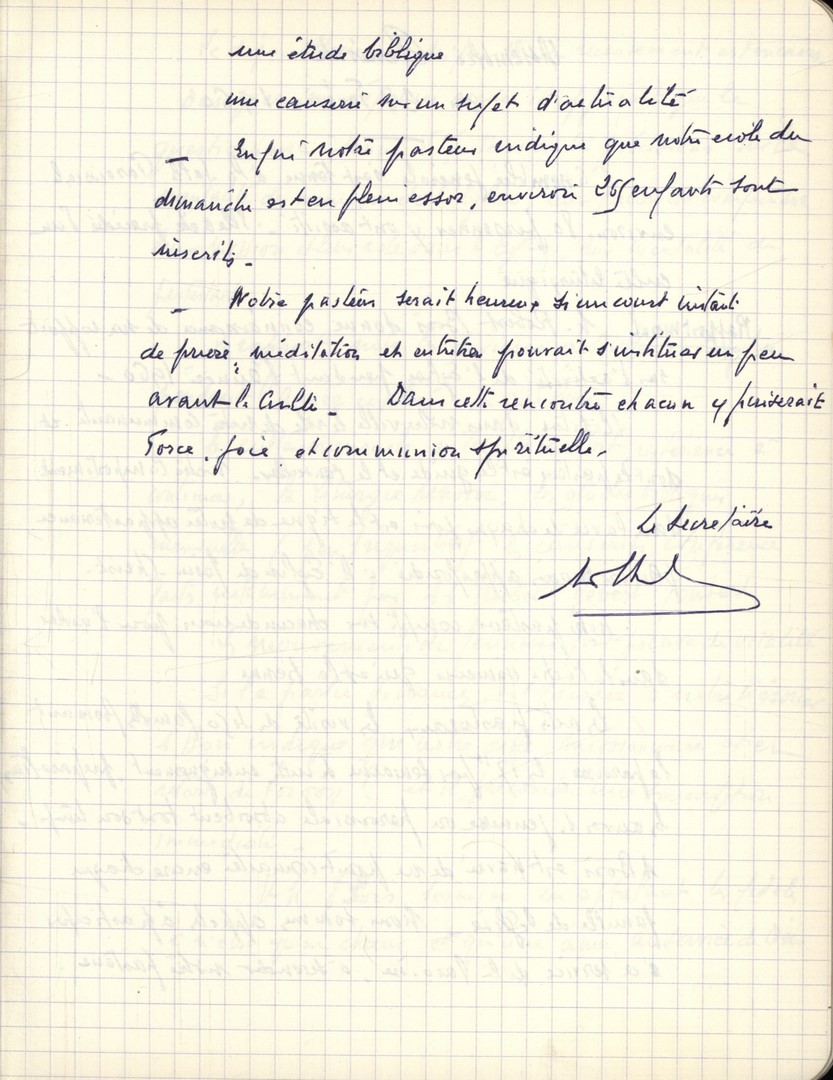 une étude biblique
une causerie sur un sujet d'actualité
– Enfin notre pasteur indique que notre école du
dimanche est en plein essor, environ enfants sont
inscrits.
– Notre pasteur serait heureux si un court instant
de prière, méditation et entretien pouvait s'instituer un peu
avant le Culte – Dans cette rencontre chacun y puiserait
Force, joie et communion spirituelle.
Le Secrétaire